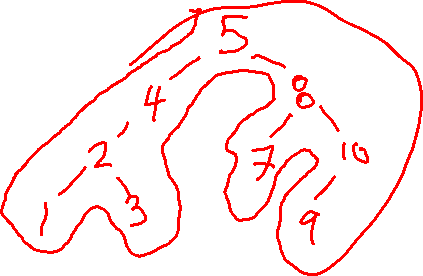 5
4 8
2 7 10
1 3 9